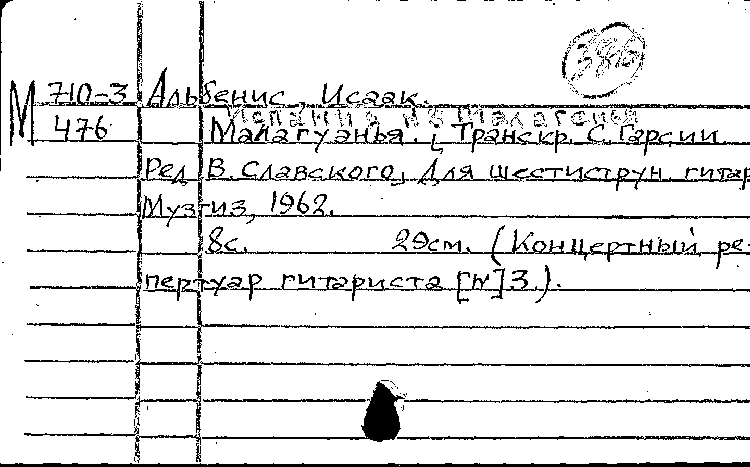 386
М 710-3 Альбенис, Исаак.
Испания №3 Малагенья
476 Малагуанья. [Транскр. С. Гарсии
Ред В. Славского, Для шестиструн. гитар
Музгиз, 1962.
8с. 29см. (Концертный ре-
пертуар гитариста [№]3.).